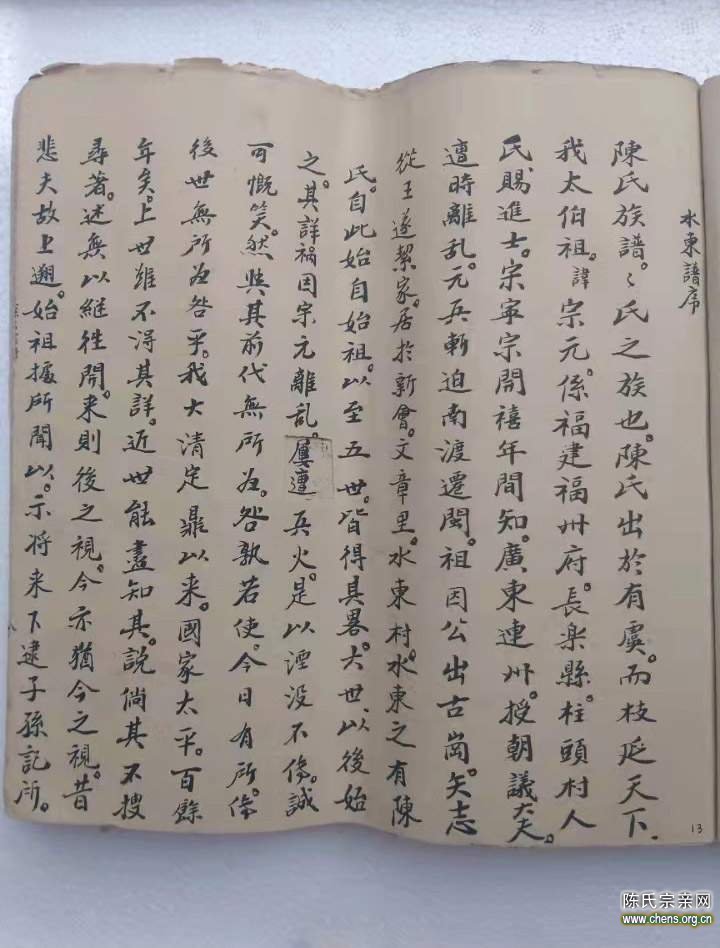 水東譜序
陳氏族譜。〻氏之族也。陳氏出於有虞。而枝延天下.
我太伯祖。諱宗元。係福建福州府。長楽縣。柱頭村人
氏賜進士。宗寧宗開禧年間知。廣東連州。授朝議大夫。
遭時離乱。元兵斬迫南渡遷閩。祖因公出古崗。矢志
從王遂挈家。居於新會。文章里。水東村。水東之有陳
氏。自此始自始祖。以至五世。皆得其畧。六世、以後始
之。其詳禍因宗元離乱。屢遭兵火。是以湮没不傳。誠
可慨笑。然與其前代無所為。咎孰若使。今日有所。傳
後世無所為咎乎。我大清定鼎以来。國家太平。百餘
年矣。上世雖不得其詳。近世能盡知其。說倘其不搜
尋著。述無以継徃開。来則後之視。今亦猶今之視。昔
悲夫故上遡。始祖據所聞以。示将来下逮子孫記所。
13
陈氏宗亲网
www.chens.org.cn